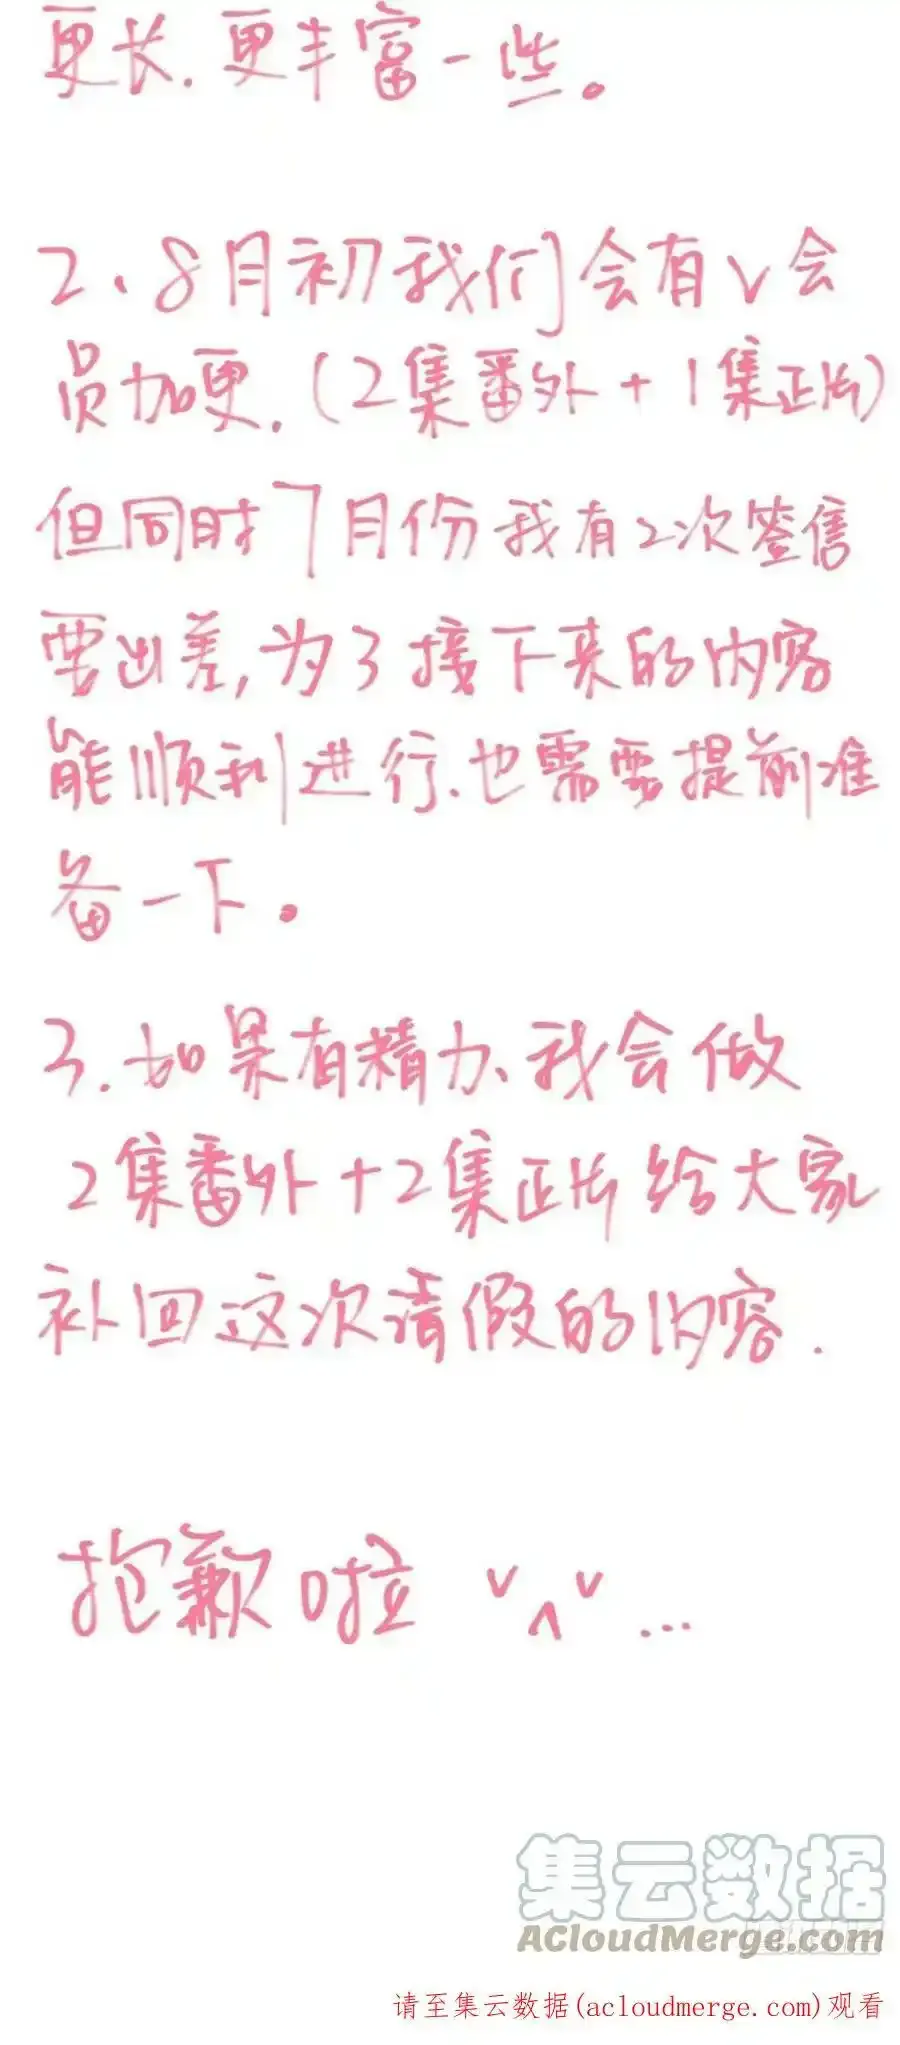 更长.更丰富一些。
2、8月初我们会有V会
员加更.(2集番外+1集正片)
但同时7月份我有2次签售
要出差,为了接下来的内容
能顺利进行.也需要提前准
备一下。
3.如果有精力、我会做
2集番外+2集正片给大家
补回这次请假的内容.
抱歉啦 v^v...
集云数据
ACloudMerge.com
请至集云数据(acloudmerge.com)观看